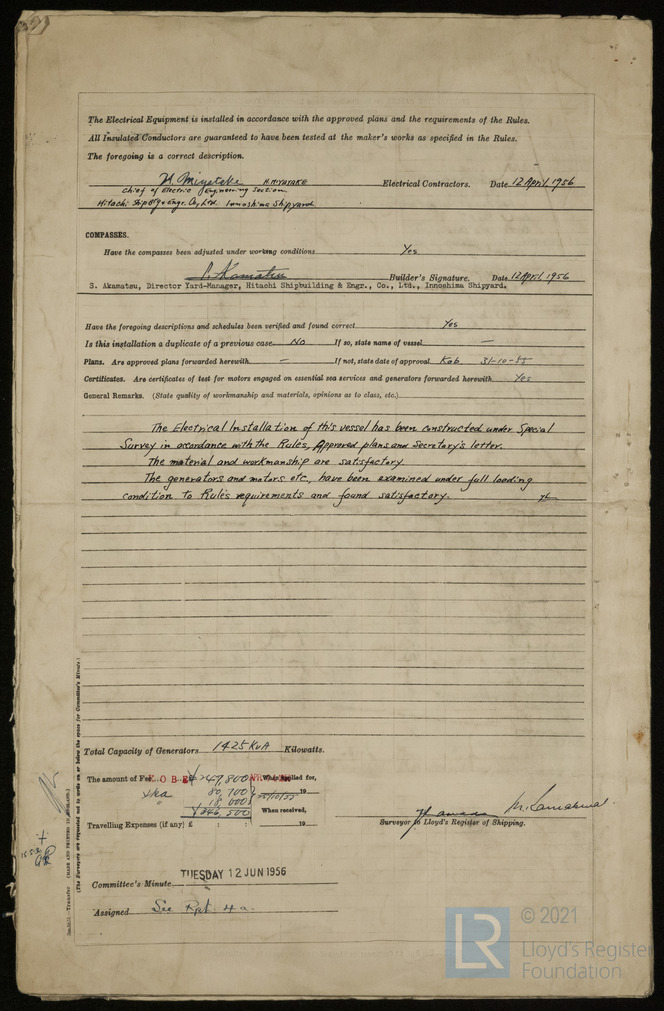 The Electrical Equipment is installed in accordance with the approved plans and the requirements of the Rules.
All Insulated Conductors are guaranteed to have been tested at the maker's works as specified in the Rules.
The foregoing is a correct description.
H. Miyatake H. MIYATAKE Electrical Contractors. Date 12 April, 1956
Chief of Electric Engineering Section
Hitachi Shipb'g & Engr. Co., Ltd. Innoshima Shipyard.
COMPASSES.
Have the compasses been adjusted under working conditions Yes
S. Akamatsu Builder's Signature. Date 12 April, 1956
S. Akamatsu, Director Yard-Manager, Hitachi Shipbuilding & Engr., Co., Ltd., Innoshima Shipyard.
Have the foregoing descriptions and schedules been verified and found correct Yes
Is this installation a duplicate of a previous case No If so, state name of vessel —
Plans. Are approved plans forwarded herewith — If not, state date of approval Kob. 31-10-55
Certificates. Are certificates of test for motors engaged on essential sea services and generators forwarded herewith Yes
General Remarks. (State quality of workmanship and materials, opinions as to class, etc.)
The Electrical Installation of this vessel has been constructed under Special
Survey in accordance with the Rules, Approved plans and Secretary's letter.
The material and workmanship are satisfactory.
The generators and motors etc., have been examined under full loading
condition to Rule's requirements and found satisfactory.
Total Capacity of Generators 1425 KVA Kilowatts.
The amount of Fee ¥247,800 When applied for,
80,700 19
18,000
¥346,500 When received,
Travelling Expenses (if any) £ : : 19
Surveyor to Lloyd's Register of Shipping.
TUESDAY 12 JUN 1956
Committee's Minute
Assigned See Rpt. 4a.
(MADE AND PRINTED IN ENGLAND.)
(The Surveyors are requested not to write on or below the space for Committee's Minute.)
LR © 2021
Lloyd's Register
Foundation